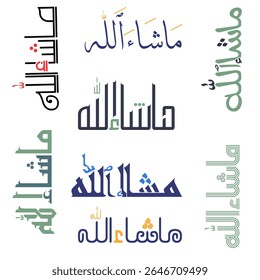 مَا شَاءَ ٱللَّٰه
ما شاء الله
ما شاء الله
ما شاء الله
ما شاء الله
مشاء الله
ما شاء الله
ما شاء الله
shutterstock.com · 2646709499